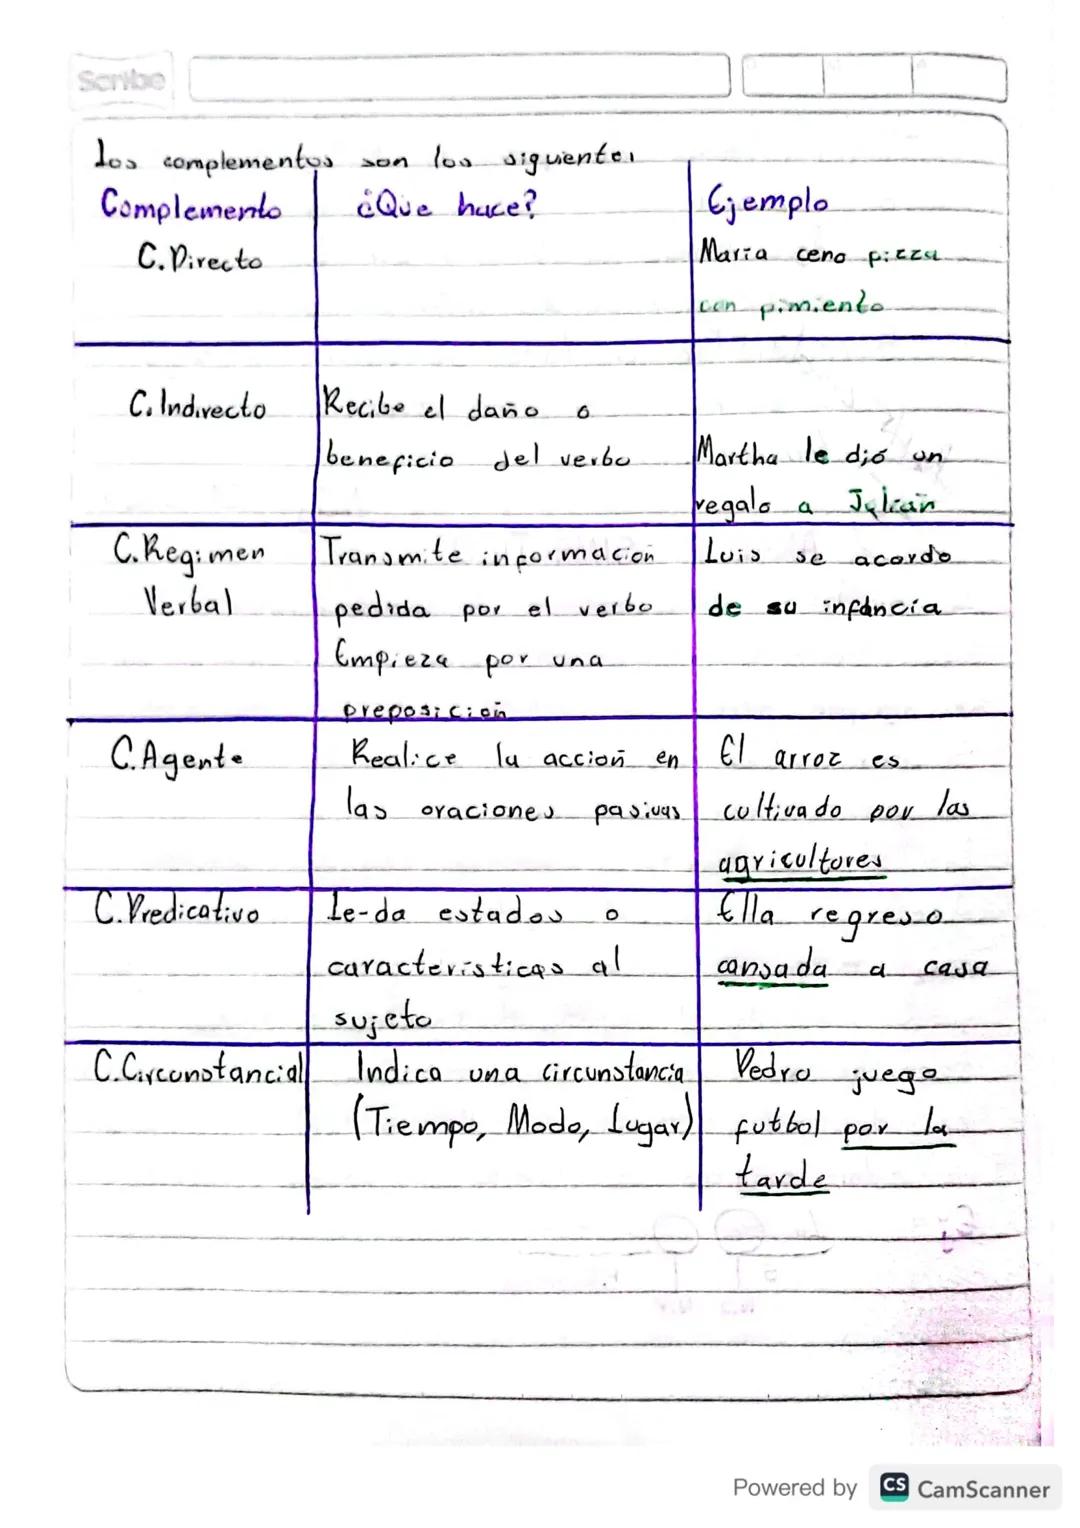 Scribe
Los complementos son los siguientes
Complemento ¿Que hace? Ejemplo
C. Directo María ceno pizza
con pimiento
C. Indirecto Recibe el daño o
beneficio del verbo Martha le dió un
regalo a Julián
C. Regimen Transmite información Luis se acordo
Verbal pedida por el verbo de su infáncia
Empieza por una
preposición
C. Agente Realice la acción en El arroz es
las oraciones pasivas cultivado por las
agricultores
C. Predicativo Le-da estados o Ella regreso
características al cansada a casa
sujeto
C. Circunstancial Indica una circunstancia Pedro juego
(Tiempo, Modo, Lugar) futbol por la
tarde
Powered by CS CamScanner